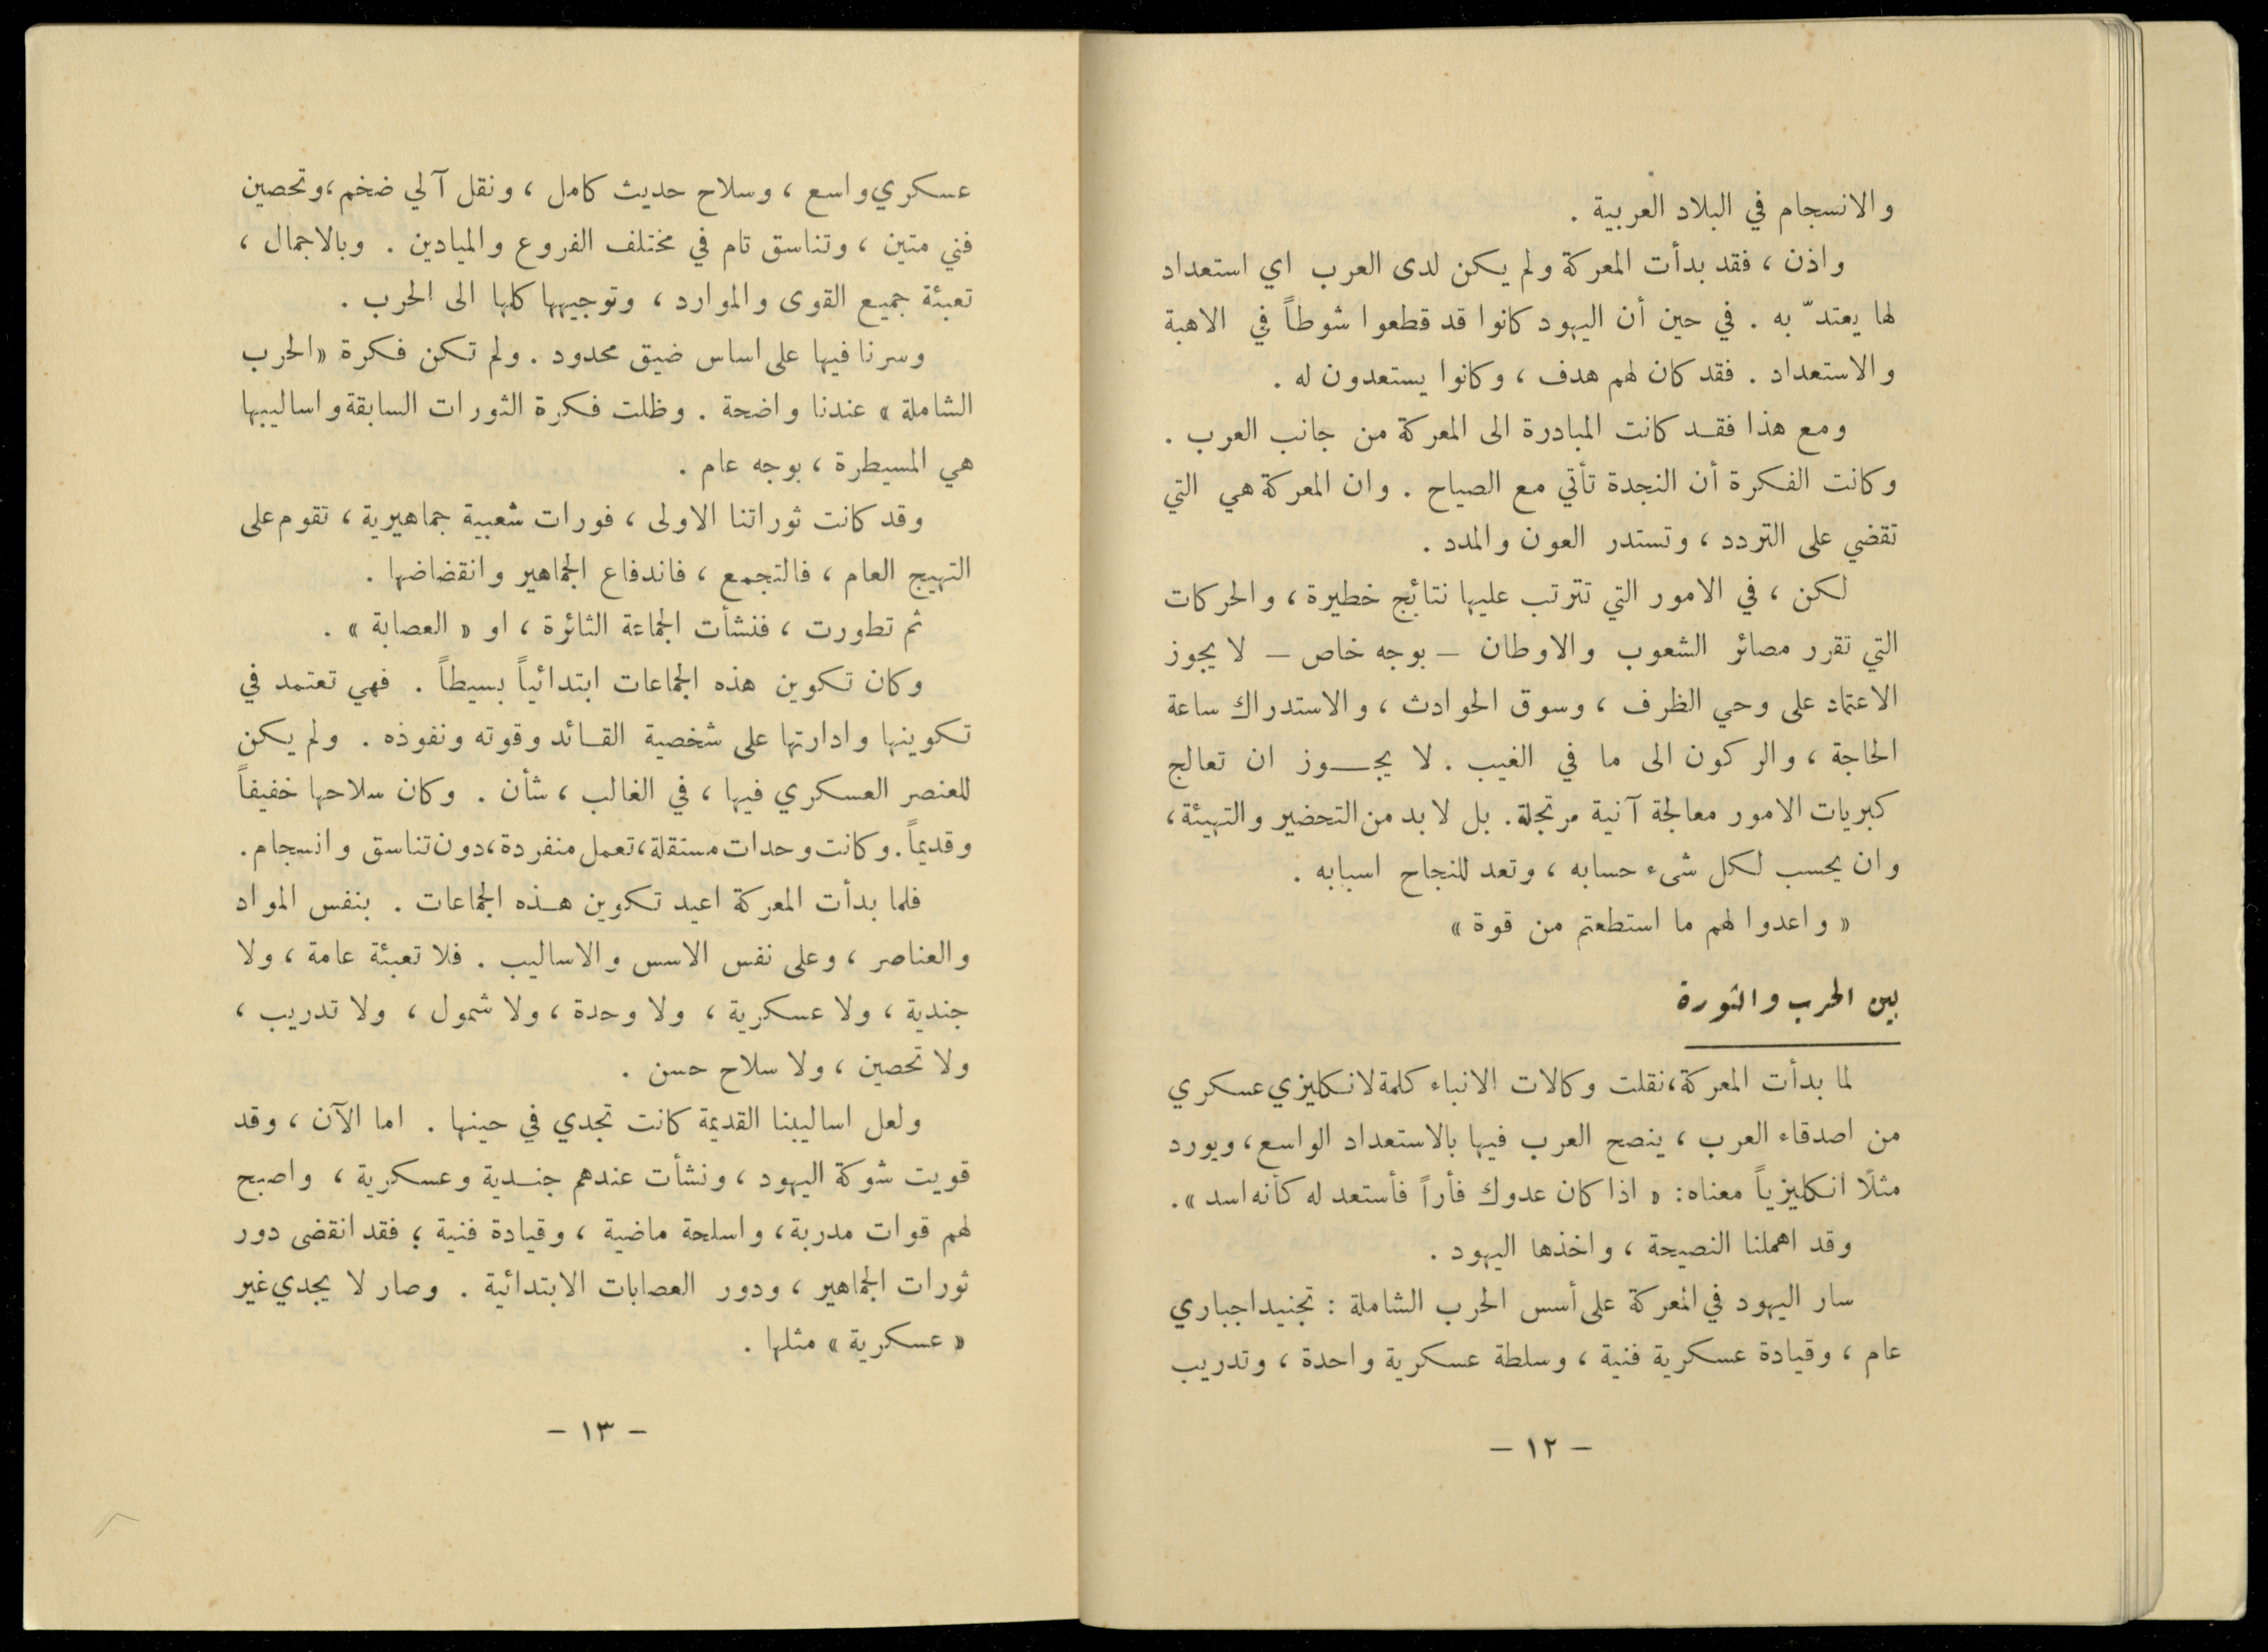 والانسجام في البلاد العربية .
واذن ، فقد بدأت المعركة ولم يكن لدى العرب اي استعداد
لها يعتدّ به . في حين أن اليهود كانوا قد قطعوا شوطاً في الاهبة
والاستعداد . فقد كان لهم هدف ، وكانوا يستعدون له .
ومع هذا فقد كانت المبادرة الى المعركة من جانب العرب .
وكانت الفكرة أن النجدة تأتي مع الصياح . وان المعركة هي التي
تقضي على التردد ، وتستدر العون والمدد .
لكن ، في الامور التي تترتب عليها نتائج خطيرة ، والحركات
التي تقرر مصائر الشعوب والاوطان – بوجه خاص – لا يجوز
الاعتماد على وحي الظرف ، وسوق الحوادث ، والاستدراك ساعة
الحاجة ، والركون الى ما في الغيب . لا يجـــوز ان تعالج
كبريات الامور معالجة آنية مرتجلة . بل لا بد من التحضير والتهيئة ،
وان يحسب لكل شيء حسابه ، وتعد للنجاح اسبابه .
« واعدوا لهم ما استطعتم من قوة »
بين الحرب والثورة
لما بدأت المعركة ، نقلت وكالات الانباء كلمة لانكليزي عسكري
من اصدقاء العرب ، ينصح العرب فيها بالاستعداد الواسع ، ويورد
مثلًا انكليزياً معناه : « اذا كان عدوك فأراً فأستعد له كأنه اسد » .
وقد اهملنا النصيحة ، واخذها اليهود .
سار اليهود في المعركة على أسس الحرب الشاملة : تجنيد اجباري
عام ، وقيادة عسكرية فنية ، وسلطة عسكرية واحدة ، وتدريب
– ١٢ –
عسكري واسع ، وسلاح حديث كامل ، ونقل آلي ضخم ، وتحصين
فني متين ، وتناسق تام في مختلف الفروع والميادين . وبالاجمال ،
تعبئة جميع القوى والموارد ، وتوجيهها كلها الى الحرب .
وسرنا فيها على اساس ضيق محدود . ولم تكن فكرة « الحرب
الشاملة » عندنا واضحة . وظلت فكرة الثورات السابقة واساليبها
هي المسيطرة ، بوجه عام .
وقد كانت ثوراتنا الاولى ، فورات شعبية جماهيرية ، تقوم على
التهييج العام ، فالتجمع ، فاندفاع الجماهير وانقضاضها .
ثم تطورت ، فنشأت الجماعة الثائرة ، او « العصابة » .
وكان تكوين هذه الجماعات ابتدائياً بسيطاً . فهي تعتمد في
تكوينها وادارتها على شخصية القـائد وقوته ونفوذه . ولم يكن
للعنصر العسكري فيها ، في الغالب ، شأن . وكان سلاحها خفيفاً
وقديماً . وكانت وحدات مستقلة ، تعمل منفردة ، دون تناسق وانسجام .
فلما بدأت المعركة اعيد تكوين هـذه الجماعات . بنفس المواد
والعناصر ، وعلى نفس الاسس والاساليب . فلا تعبئة عامة ، ولا
جندية ، ولا عسكرية ، ولا وحدة ، ولا شمول ، ولا تدريب ،
ولا تحصين ، ولا سلاح حسن .
ولعل اساليبنا القديمة كانت تجدي في حينها . اما الآن ، وقد
قويت شوكة اليهود ، ونشأت عندهم جنـدية وعسكرية ، واصبح
لهم قوات مدربة ، واسلحة ماضية ، وقيادة فنية ؛ فقد انقضى دور
ثورات الجماهير ، ودور العصابات الابتدائية . وصار لا يجدي غير
« عسكرية » مثلها .
– ١٣ –